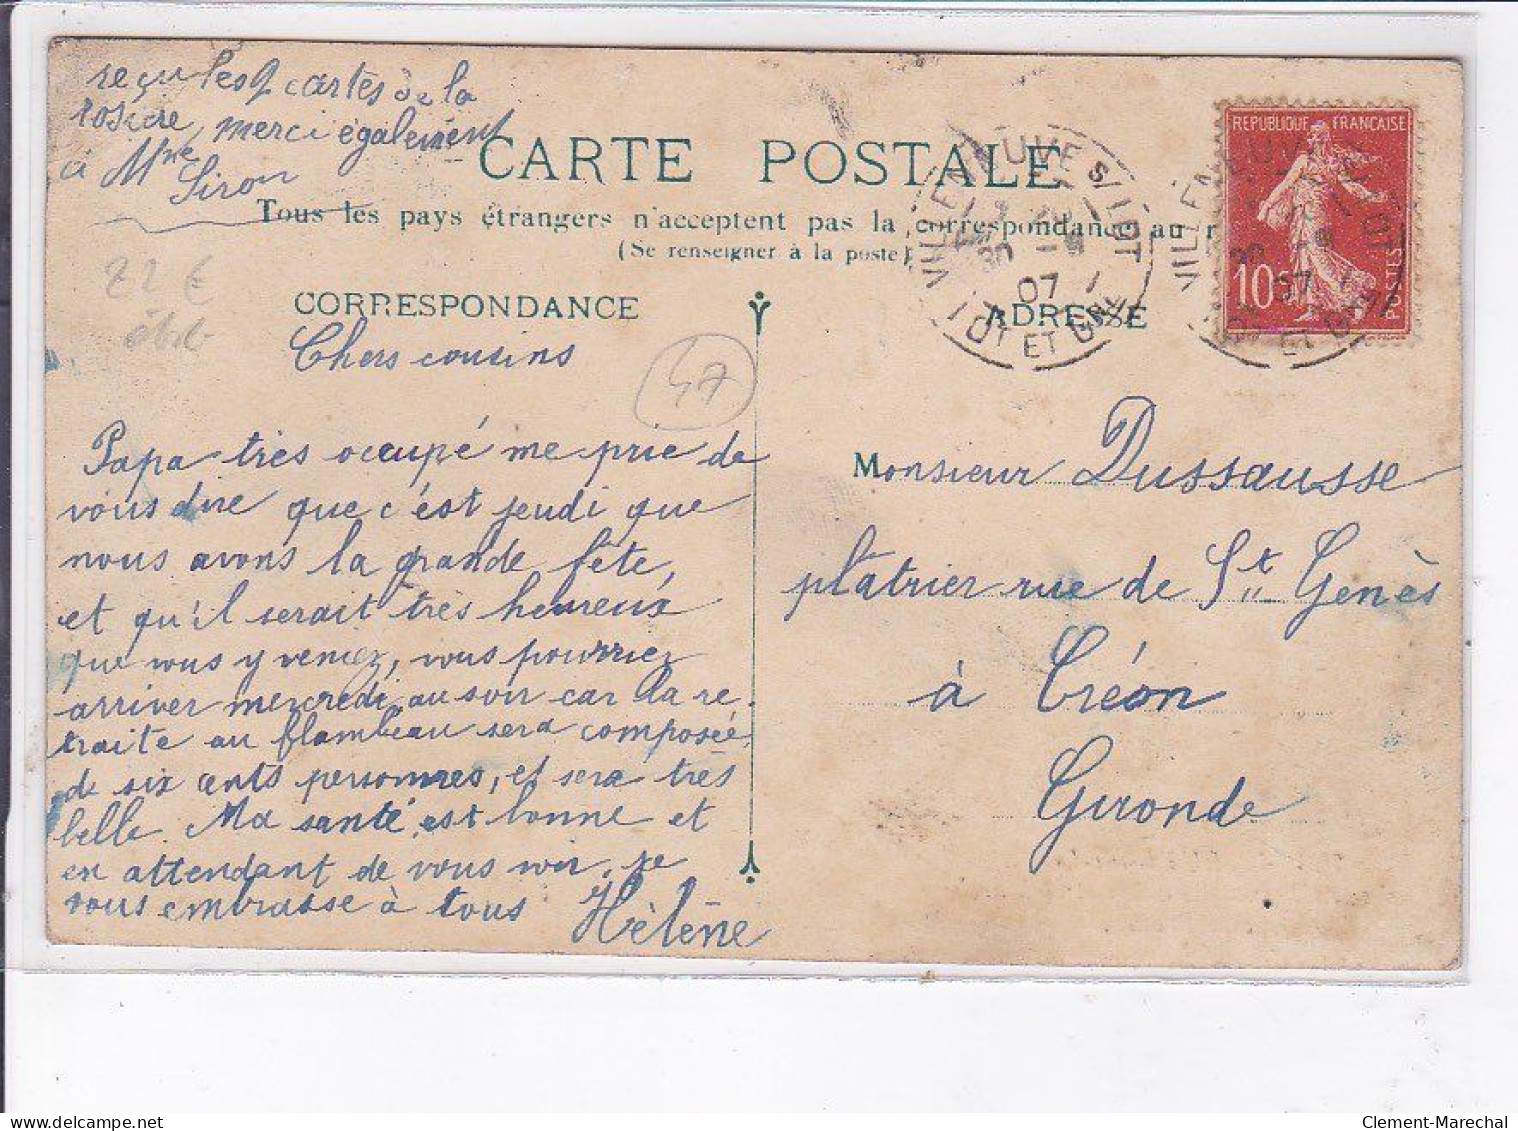 reçu les 2 cartes de la
rosière, merci également
à Mme Siron
CARTE POSTALE
Tous les pays étrangers n'acceptent pas la correspondance au
(Se renseigner à la poste)
22 €
CORRESPONDANCE
ADRESSE
Chers cousins
47
Papa très occupé me prie de
vous dire que c'est jeudi que
nous avons la grande fête,
et qu'il serait très heureux
que vous y veniez, vous pourriez
arriver mercredi au soir car la re-
traite au flambeau sera composée
de six cents personnes, et sera très
belle. Ma santé est bonne et
en attendant de vous voir, je
vous embrasse à tous Hélène
Monsieur Dussausse
plâtrier rue de St Genès
à Créon
Gironde
REPUBLIQUE FRANÇAISE
10c
POSTES
VILLENEUVE S/ LOT
30 -9
07
LOT ET GAR
VILLENEUVE S/ LOT
30 -9
07
LOT ET GAR
Clement-Marechal